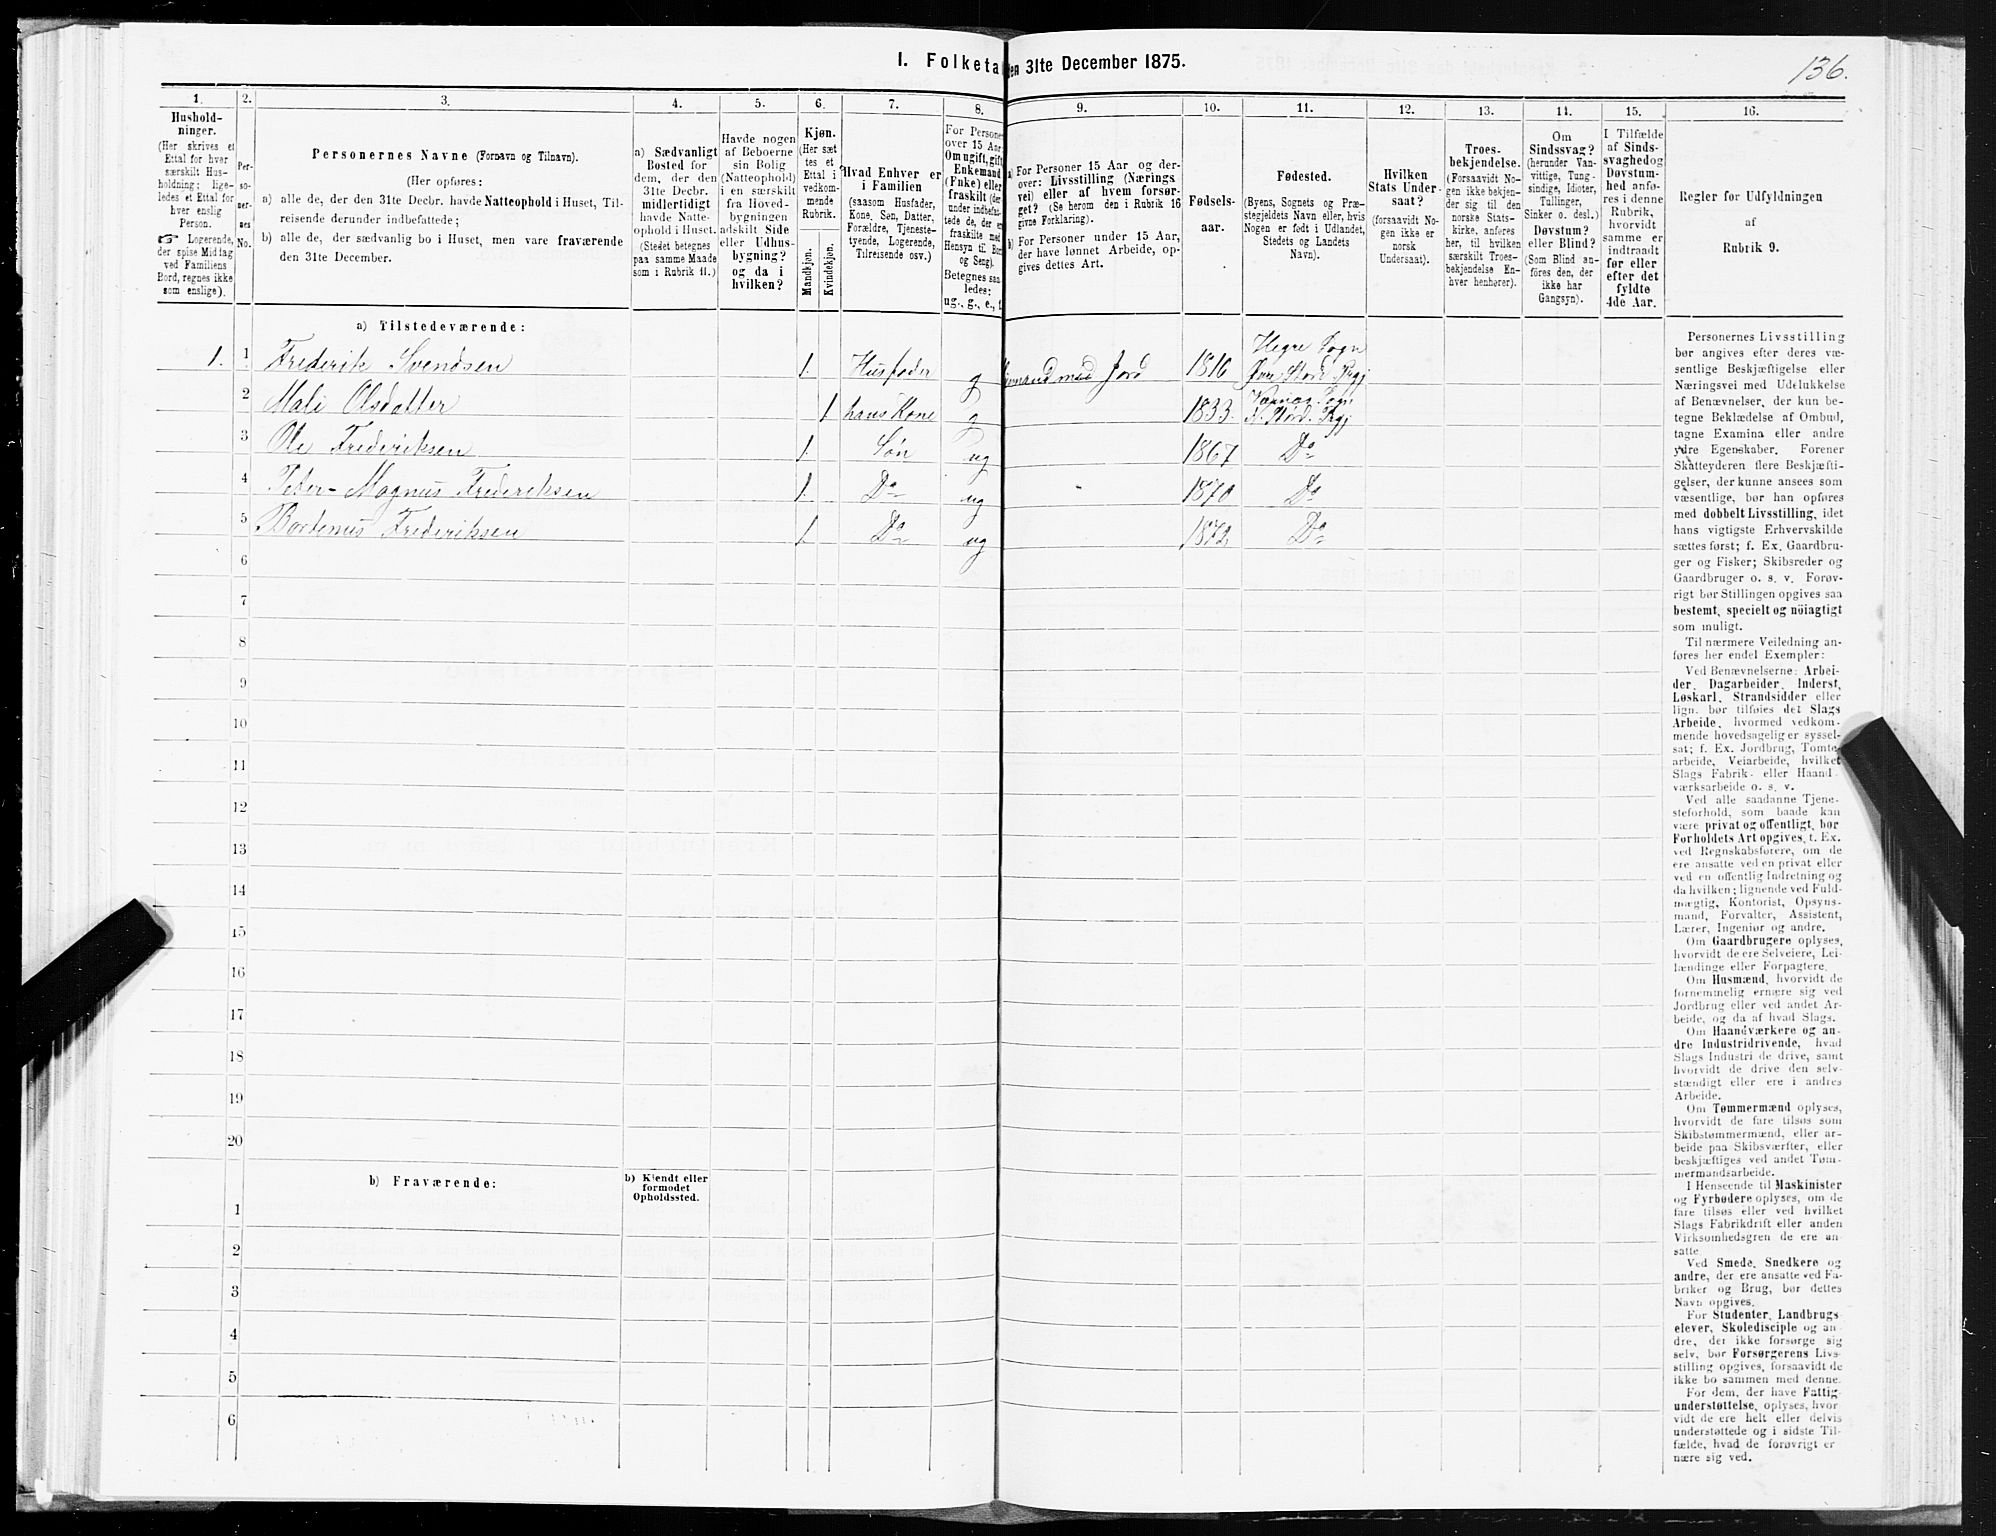 I. Folketa
den 31te December 1875.
136.
1.
Hushold-
ninger.
(Her skrives et
Ettal for hver
særskilt Hus-
holdning; lige-
ledes et Ettal for
hver enslig
Person.
☞ Logerende,
der spise Middag
ved Familiens
Bord, regnes ikke
som enslige).
2.
Per-
so-
ner-
nes
No.
3.
Personernes Navne (Fornavn og Tilnavn).
(Her opføres:
a) alle de, der den 31te Decbr. havde Natteophold i Huset, Til-
reisende derunder indbefattede;
b) alle de, der sædvanlig bo i Huset, men vare fraværende
den 31te December.
4.
a) Sædvanligt
Bosted for
dem, der den
31te Decbr.
midlertidigt
havde Natte-
ophold i Huset.
(Stedet betegnes
paa samme Maade
som i Rubrik 11.)
5.
Havde nogen
af Beboerne
sin Bolig
(Natteophold)
i en særskilt
fra Hoved-
bygningen
adskilt Side
eller Udhus-
bygning?
og da i
hvilken?
6.
Kjøn.
(Her sæt
tes et
Ettal i
vedkom-
mende
Rubrik.
Mandkjøn.
Kvindekjøn.
7.
Hvad Enhver er
i Familien
(saasom Husfader,
Kone, Søn, Datter,
Forældre, Tjeneste-
tyende, Logerende,
Tilreisende osv.)
8.
For Persone
over 15 Aar
Om ugift, gift
Enkemand
(Enke) eller
fraskilt (der
under indbefat-
tede de, der er
fraskilte med
Hensyn til Bor
og Seng).
Betegnes saa
ledes:
ug., g., e., f.
9.
a) For Personer 15 Aar og der-
over: Livsstilling (Nærings
vei) eller af hvem forsør-
get? (Se herom den i Rubrik 16
givne Forklaring).
b) For Personer under 15 Aar,
der have lønnet Arbeide, op-
gives dettes Art.
10.
Fødsels-
aar.
11.
Fødested.
(Byens, Sognets og Præ-
stegjeldets Navn eller, hvis
Nogen er født i Udlandet,
Stedets og Landets
Navn).
12.
Hvilken
Stats Under-
saat?
(forsaavidt No-
gen ikke er
norsk
Undersaat).
13.
Troes-
bekjendelse.
(Forsaavidt No-
gen ikke bekjen-
der sig til den
norske Stats-
kirke, anføres
her, til hvilken
særskilt Troes-
bekjendelse En-
hver henhører).
14.
Om
Sindssvag?
(herunder Van-
vittige, Tung-
sindige, Idioter,
Tullinger,
Sinker o. desl.)
Døvstum?
eller Blind?
(Som Blind an-
føres den, der
ikke har
Gangsyn).
15.
I Tilfælde
af Sinds-
svaghed og
Døvstum-
hed anfø-
res i denne
Rubrik,
hvorvidt
samme er
indtraadt
før eller
efter det
fyldte
4de Aar.
16.
Regler for Udfyldningen
af
Rubrik 9.
a) Tilstedeværende:
1. 1 Frederik Svendsen 1. Husfader g med Jord 1816 Hegre Sogn
2 Mali Olsdatter 1 hans Kone g 1833.
3 Ole Frederiksen 1. Søn ug 1867 Do
4 Peter-Magnus Frederiksen 1. Do ug 1870 Do
5 Bortenus Frederiksen 1. Do ug 1872 Do
6
7
8
9
10
11
12
13
14
15
16
17
18
19
20
b) Fraværende:
b) Kjendt eller
formodet
Opholdssted.
1
2
3
4
5
6
Personernes Livsstilling
bør angives efter deres væ-
sentlige Beskjæftigelse eller
Næringsvei med Udelukkelse
af Benævnelser, der kun be-
tegne Beklædelse af Ombud,
tagne Examina eller andre
ydre Egenskaber. Forener
Skatteyderen flere Beskjæfti-
gelser, der kunne ansees som
væsentlige, bør han opføres
med dobbelt Livsstilling, idet
hans vigtigste Erhvervskilde
sættes først; f. Ex. Gaardbru-
ger og Fisker; Skibsreder og
Gaardbruger o. s. v. Forøv-
rigt bør Stillingen opgives saa
bestemt, specielt og nöiagtigt
som muligt.
Til nærmere Veiledning an-
føres her endel Exempler:
Ved Benævnelserne: Arbei-
der, Dagarbeider, Inderst,
Løskarl, Strandsidder eller
lign. bør tilføies det Slags
Arbeide, hvormed vedkom-
mende hovedsagelig er syssel-
sat; f. Ex. Jordbrug, Tomte-
arbeide, Veiarbeide, hvilket
Slags Fabrik- eller Haand-
værksarbeide o. s. v.
Ved alle saadanne Tjene-
steforhold, som baade kan
være privat og offentligt, bør
Forholdets Art opgives, t. Ex.
ved Regnskabsførere, om de
ere ansatte ved en privat eller
ved en offentlig Indretning og
da hvilken; lignende ved Fuld-
mægtig, Kontorist, Opsyns-
mand, Forvalter, Assistent,
Lærer, Ingeniør og andre.
Om Gaardbrugere oplyses,
hvorvidt de ere Selveiere, Lei-
lændinge eller Forpagtere.
Om Husmænd, hvorvidt de
fornemmelig ernære sig ved
Jordbrug eller ved andet Ar-
beide, og da af hvad Slags.
Om Haandværkere og an-
dre Industridrivende, hvad
Slags Industri de drive, samt
hvorvidt de drive den selv-
stændigt eller ere i andres
Arbeide.
Om Tømmermænd oplyses,
hvorvidt de fare tilsøs som
Skibstømmermænd, eller ar-
beide paa Skibsværfter, eller
beskjæftiges ved andet Tøm-
mermandsarbeide.
I Henseende til Maskinister
og Fyrbødere oplyses, om de
fare tilsøs eller ved hvilket
Slags Fabrikdrift eller anden
Virksomhedsgren de ere an-
satte.
Ved Smede, Snedkere og
andre, der ere ansatte ved Fa-
briker og Brug, bør dettes
Navn opgives.
For Studenter, Landbrugs-
elever, Skoledisciple og an-
dre, der ikke forsørge sig
selv, bør Forsørgerens Livs-
stilling opgives, forsaavidt de
ikke bo sammen med denne.
For dem, der have Fattig-
understøttelse, oplyses, hvor
vidt de ere helt eller delvis
understøttede og i sidste Til-
fælde, hvad de forøvrigt er
nære sig ved.